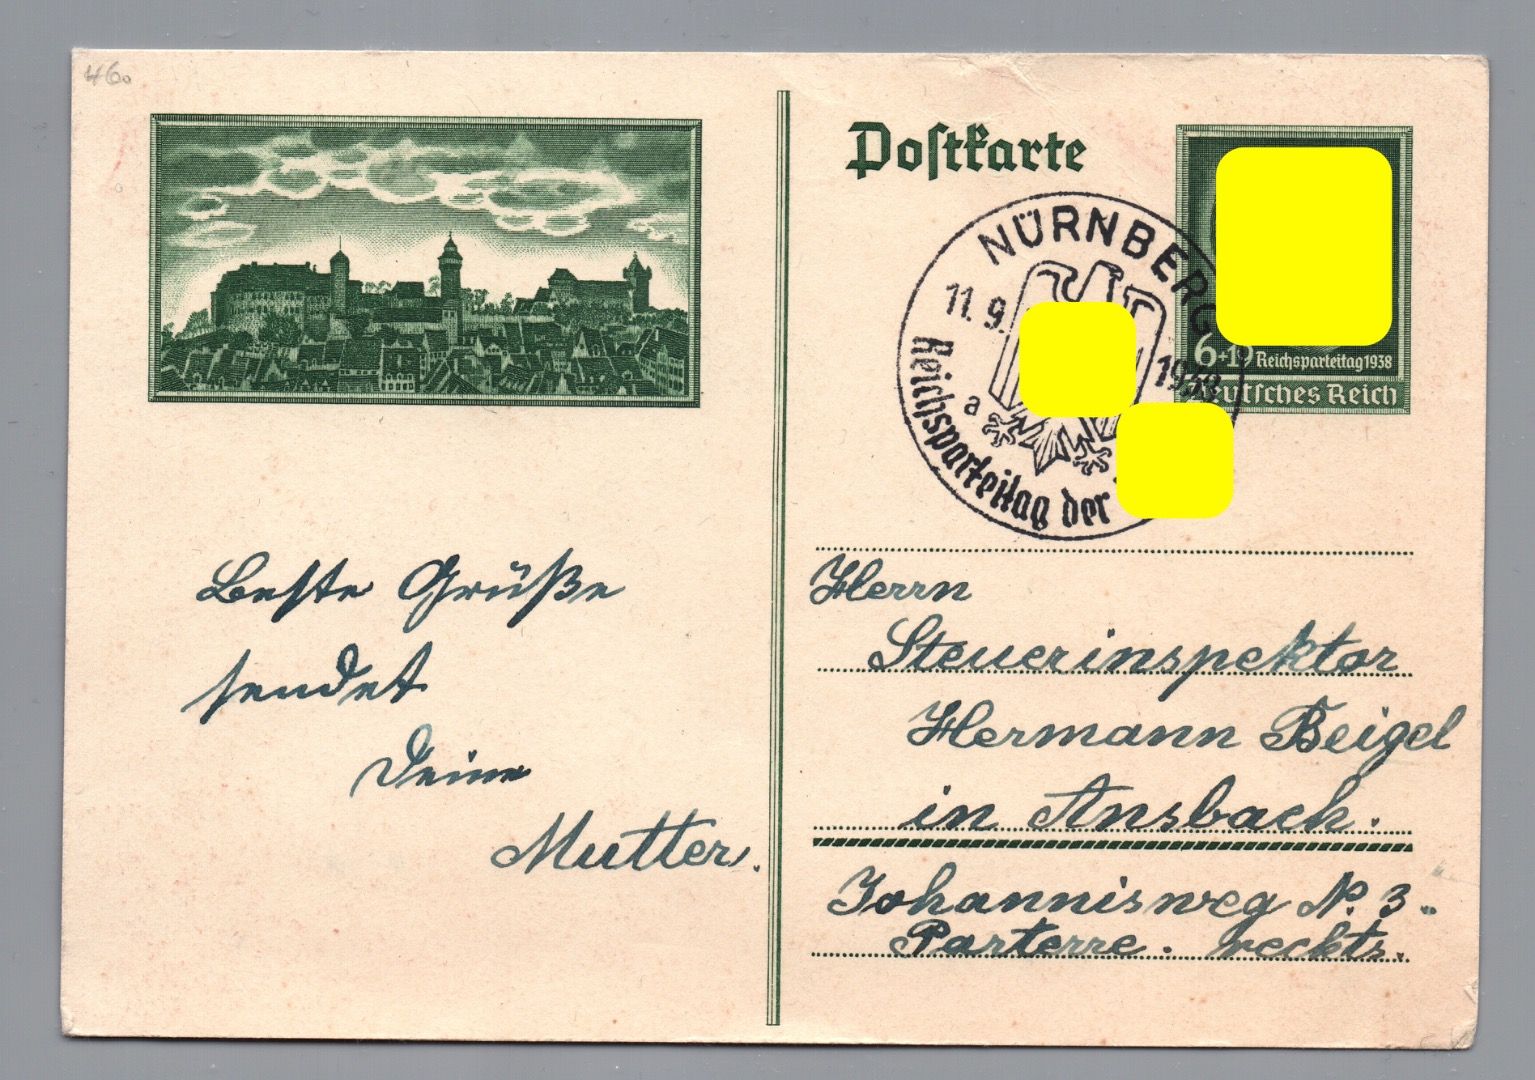 460
Postkarte
NÜRNBERG
11. 9. 1938
a
Reichsparteitag der
6+19 Reichsparteitag 1938
Deutsches Reich
Beste Grüße
sendet
Deine
Mutter.
Herrn
Steuerinspektor
Hermann Beigel
in Ansbach.
Johannisweg No. 3.
Parterre. rechts.